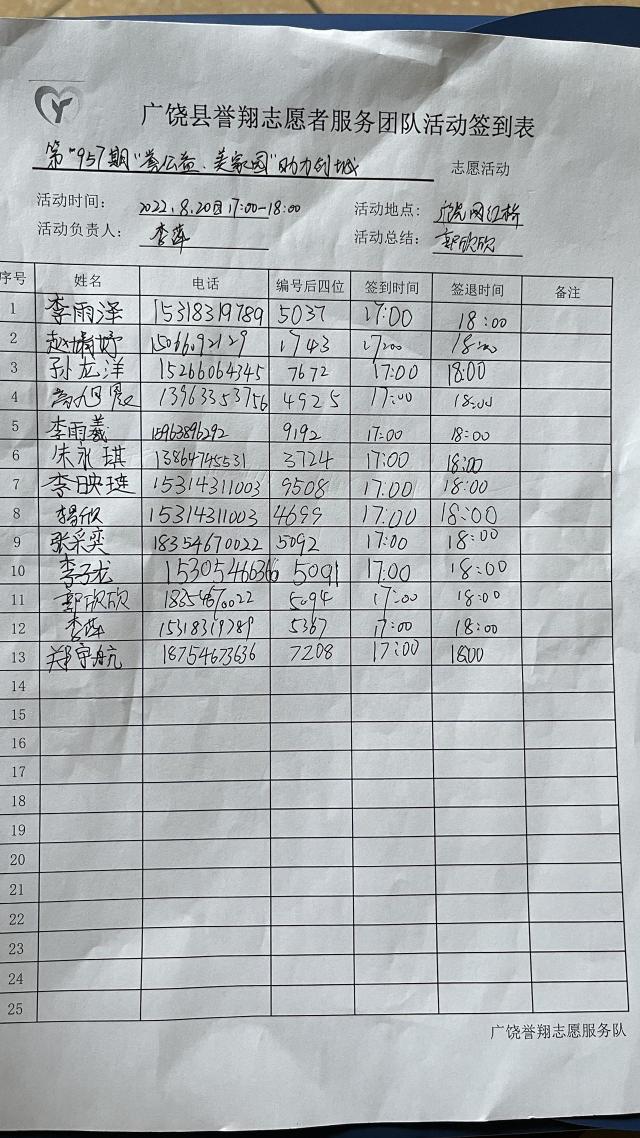 广饶县誉翔志愿者服务团队活动签到表
第"957期"誉公益·美家园"助力创城 志愿活动
活动时间: 2022.8.20日17:00-18:00 活动地点:
活动负责人: 李萍 活动总结: 郭欣欣
序号 姓名 电话 编号后四位 签到时间 签退时间 备注
1 李雨泽 15318319789 5037 17:00 18:00
2 赵婧妤 15066092129 1743 17:00 18:00
3 孙应洋 15266064345 7672 17:00 18:00
4 高旭晨 13963353756 4925 17:00 18:00
5 李雨羲 15963896292 9192 17:00 18:00
6 朱永琪 13864745531 3724 17:00 18:00
7 李映琏 15314311003 9508 17:00 18:00
8 杨欣 15314311003 4699 17:00 18:00
9 张采奕 18354670022 5092 17:00 18:00
10 李子龙 15305466366 5091 17:00 18:00
11 郭欣欣 18354670022 5094 17:00 18:00
12 李萍 15318319789 5367 17:00 18:00
13 郑宇航 18754673636 7208 17:00 18:00
14
15
16
17
18
19
20
21
22
23
24
25
广饶誉翔志愿服务队